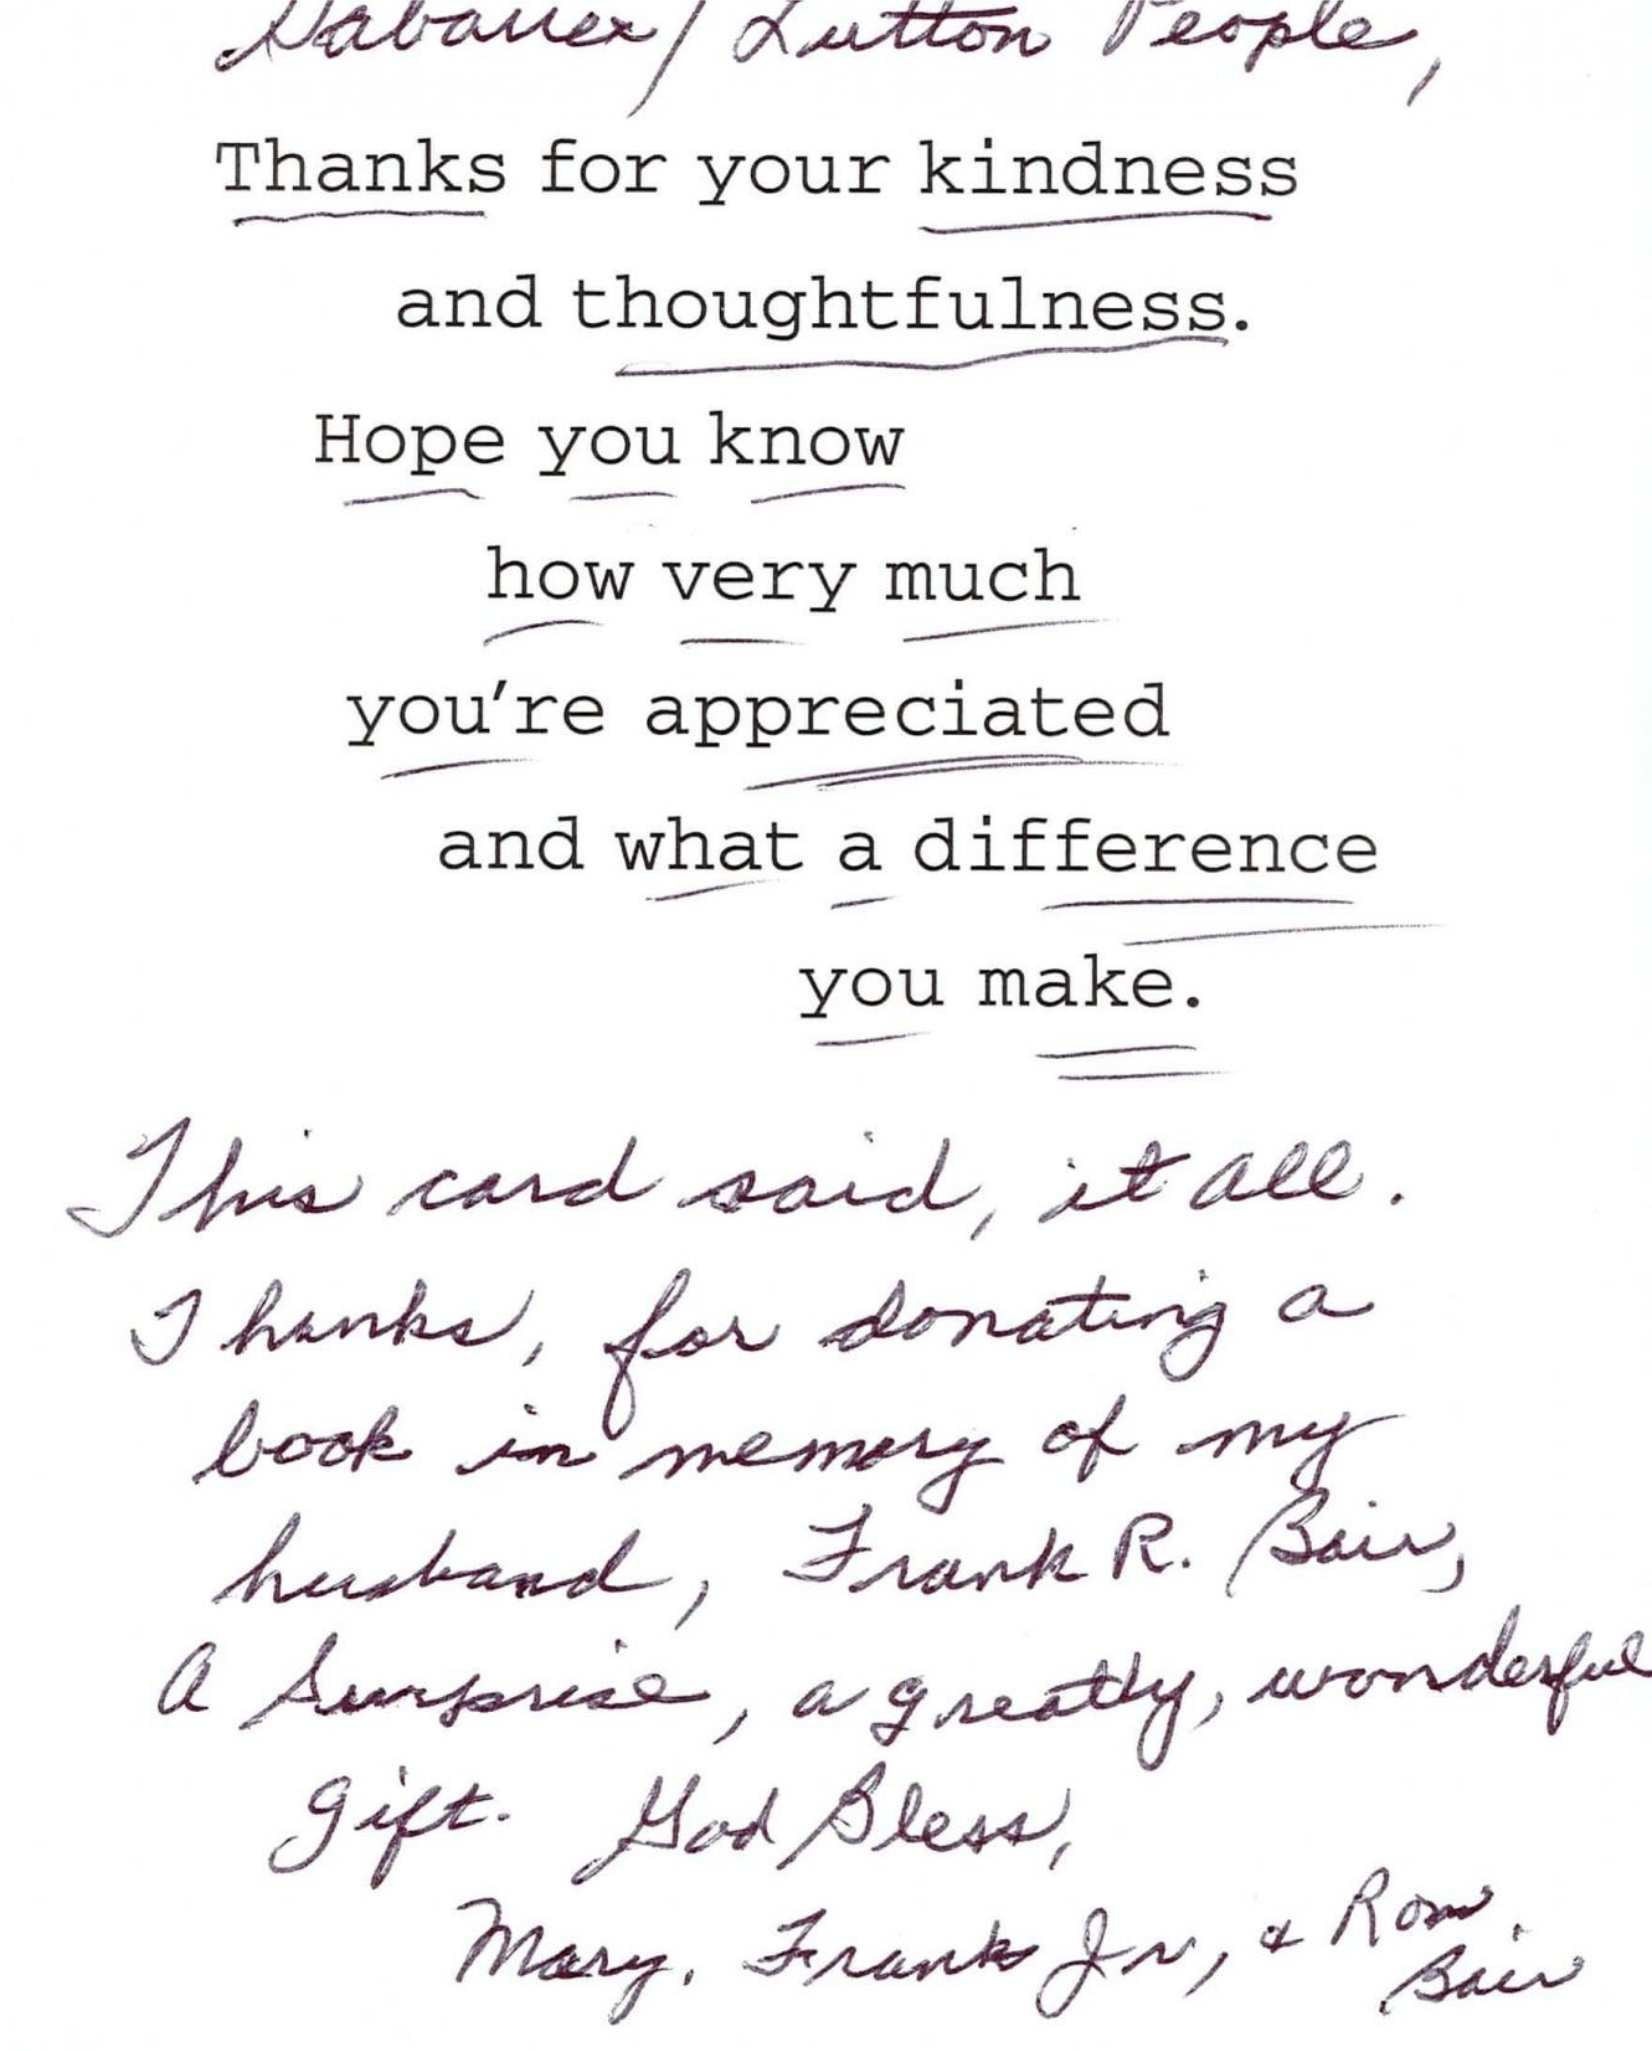 Gabauer/Lutton People,
Thanks for your kindness
and thoughtfulness.
Hope you know
how very much
you're appreciated
and what a difference
you make.
This card said, it all.
Thanks, for donating a
book in memory of my
husband, Frank R. Bair,
A Surprise, a greatly, wonderful
gift. God Bless,
Mary, Frank Jr, & Ron
Bair